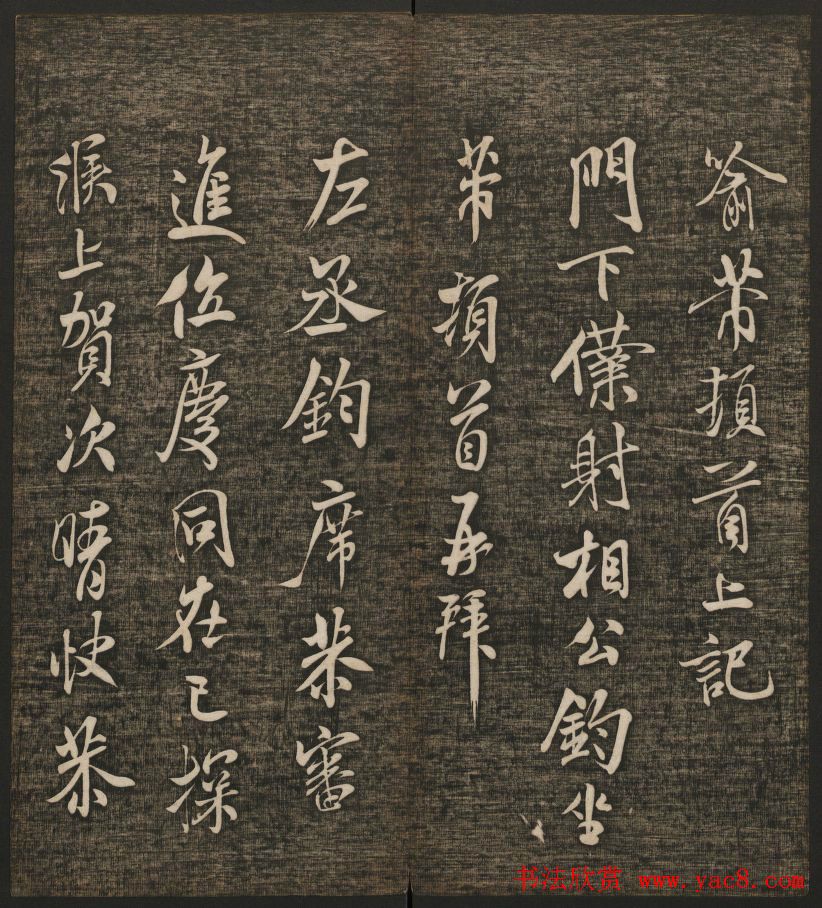 喻芾頓首上記
門下僕射相公鈞坐
芾頓首再拜
左丞鈞席恭審
進位慶同在已深
上賀次晴快恭
书法欣赏 www.yac8.com